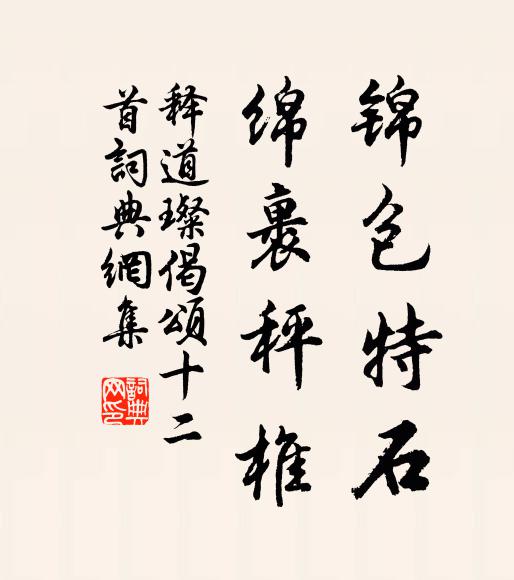 锦包特石
绵裹秤椎
释道璨偈颂十二
首词典網集
詞典網印